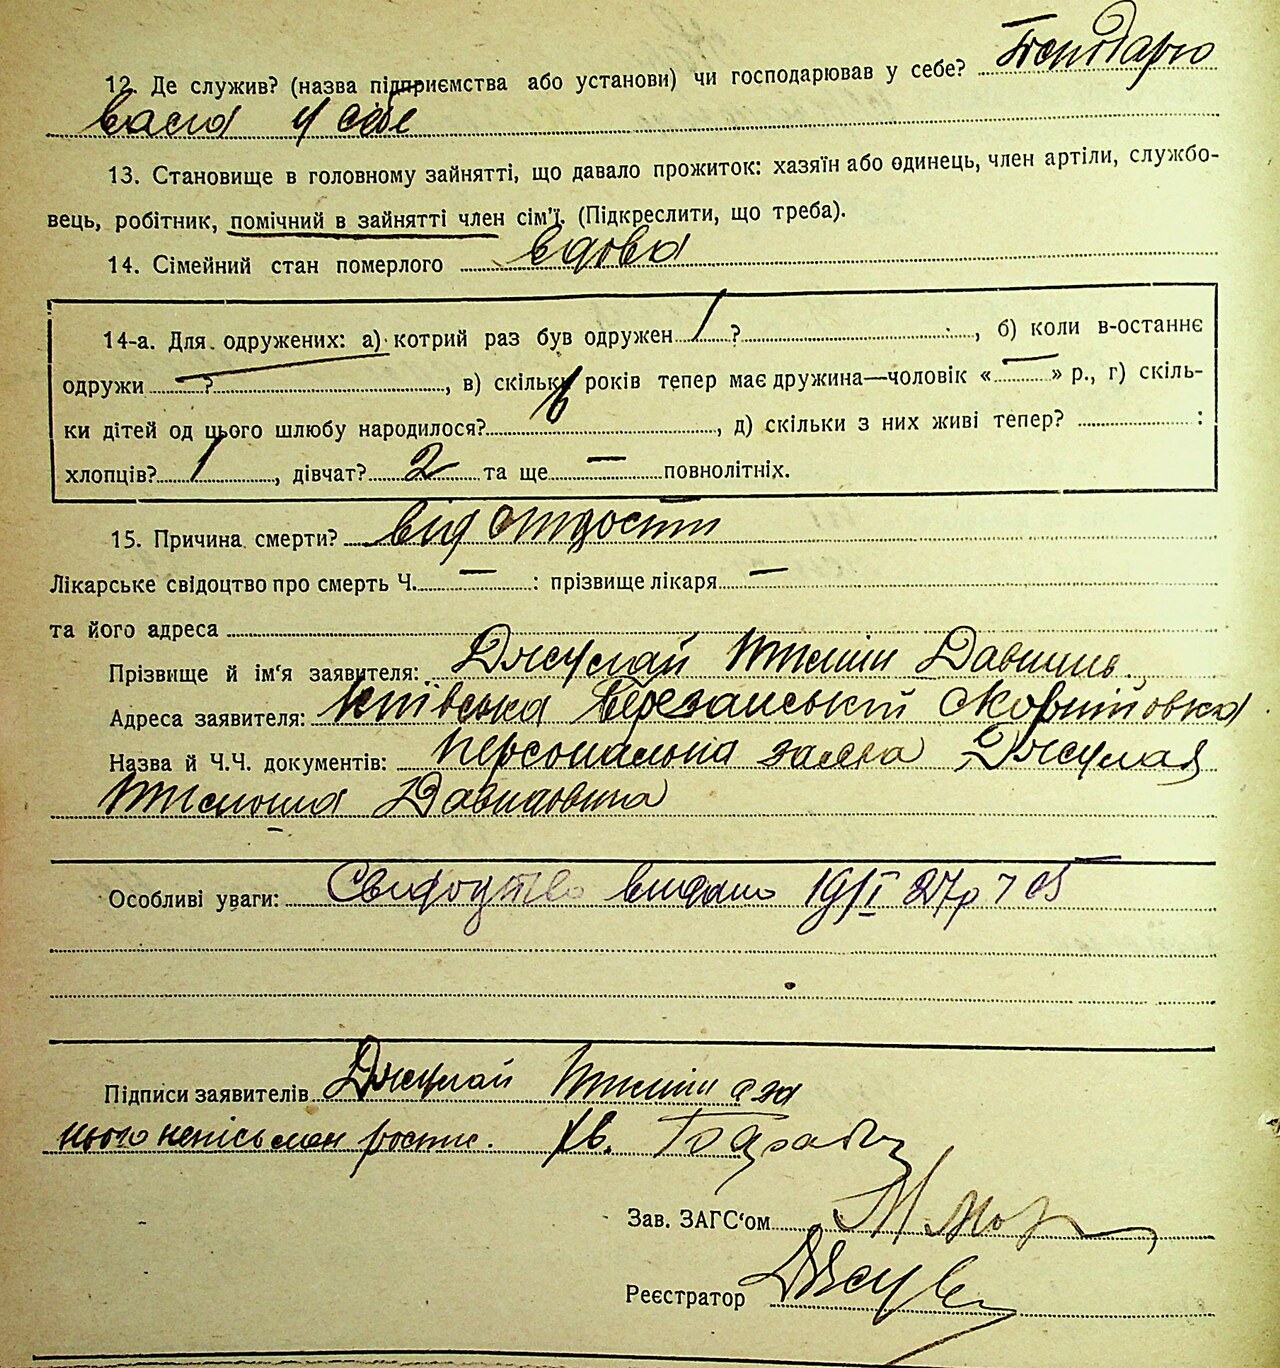 12. Де служив? (назва підприємства або установи) чи господарював у себе? Господарю
вала у себе
13. Становище в головному зайнятті, що давало прожиток: хазяїн або одинець, член артіли, службо-
вець, робітник, помічний в зайнятті член сім'ї. (Підкреслити, що треба).
14. Сімейний стан померлого вдова
14-а. Для одружених: а) котрий раз був одружен 1 ?, б) коли в-останнє
одружи — ?, в) скільки років тепер має дружина—чоловік « — » р., г) скіль-
ки дітей од цього шлюбу народилося? 6, д) скільки з них живі тепер? :
хлопців? 1, дівчат? 2 та ще — повнолітніх.
15. Причина смерти? від старости
Лікарське свідоцтво про смерть Ч. — : прізвище лікаря —
та його адреса
Прізвище й ім'я заявителя: Джулай Давид.
Адреса заявителя: Київська Березанський
Назва й Ч.Ч. документів: персональна заява Джулая
Давидовича
Особливі уваги: Свидоцтво видано 19/I 27р 7
Підписи заявителів Джулай а за
нього неписьмен роспис.
Зав. ЗАГС'ом
Реєстратор